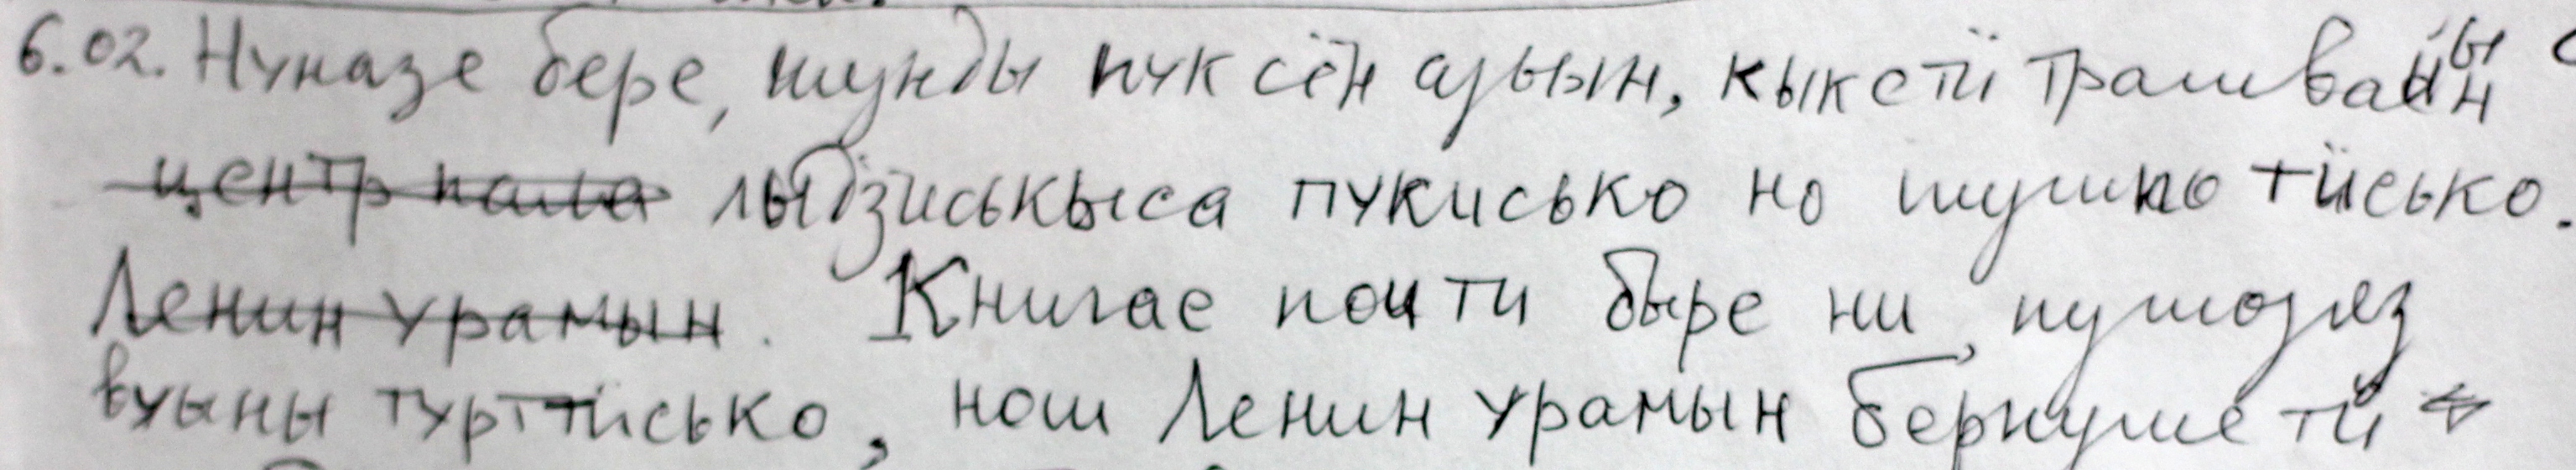 6.02. Нуназе бере, шунды пуксён азьын, кыкетӥ трамвайын
центр пала лыдӟиськыса пукисько но шумпотӥсько.
Ленин урамын. Книгае почти быре ни, пумозяз
вуыны турттӥсько, нош Ленин урамын берпуметӥ